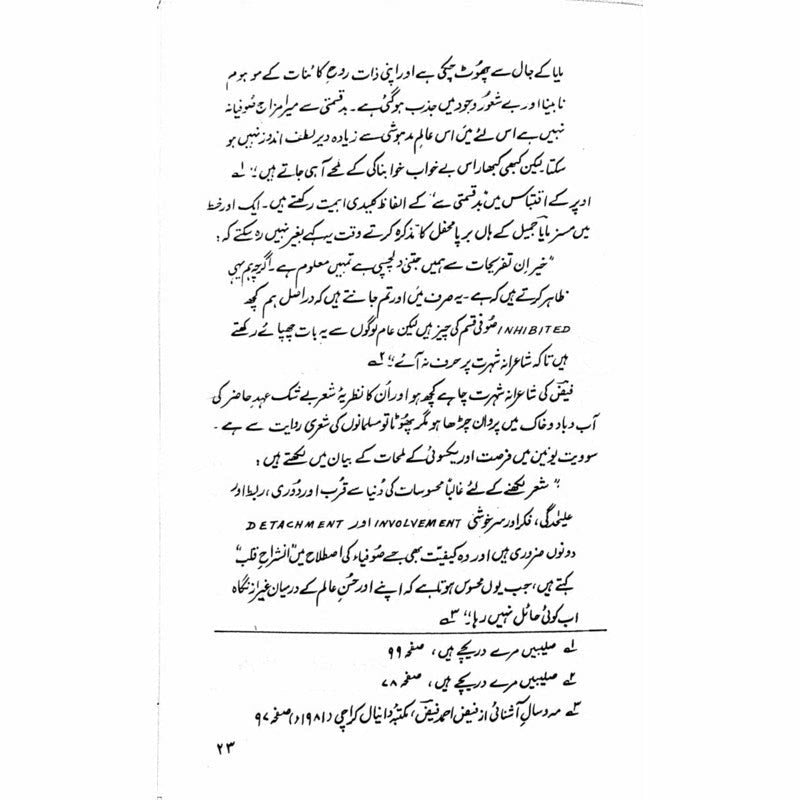 مایا کے جال سے چھوٹ چکی ہے اور اپنی ذات روحِ کائنات کے موہوم
نابینا اور بے شعور وجود میں جذب ہو گئی ہے۔ بدقسمتی سے میرا مزاج صوفیانہ
نہیں ہے اس لئے میں اس عالمِ مدہوشی سے زیادہ دیر لطف اندوز نہیں ہو
سکتا لیکن کبھی کبھار اس بے خواب خوابناکی کے لمحے آ ہی جاتے ہیں"۔ ۱ے
اوپر کے اقتباس میں "بدقسمتی سے" کے الفاظ کلیدی اہمیت رکھتے ہیں۔ ایک اور خط
میں مسز مایا جمیل کے ہاں برپا محفل کا تذکرہ کرتے وقت یہ کہے بغیر نہیں رہ سکتے کہ :
"خیر ان تفریحات سے ہمیں جتنی دلچسپی ہے تمہیں معلوم ہے۔ اگرچہ ہم یہی
ظاہر کرتے ہیں کہ ہے۔ یہ صرف میں اور تم جانتے ہیں کہ دراصل ہم کچھ
INHIBITED صوفی قسم کی چیز ہیں لیکن عام لوگوں سے یہ بات چھپائے رکھتے
ہیں تاکہ شاعرانہ شہرت پر حرف نہ آئے"۔ ۲ے
فیضؔ کی شاعرانہ شہرت چاہے کچھ ہو اور اُن کا نظریۂ شعر بے شک عہدِ حاضر کی
آب و باد و خاک میں پروان چڑھا ہو مگر پھوٹا تو مسلمانوں کی شعری روایت سے ہے۔
سوویت یونین میں فرصت اور یکسوئی کے لمحات کے بیان میں لکھتے ہیں :
"شعر لکھنے کے لئے غالباً محسوسات کی دُنیا سے قُرب اور دُوری، ربط اور
علیٰحدگی، فکر اور سرخوشی INVOLVEMENT اور DETACHMENT
دونوں ضروری ہیں اور وہ کیفیت بھی جسے صوفیاء کی اصطلاح میں "انشراحِ قلب"
کہتے ہیں، جب یوں محسوس ہوتا ہے کہ اپنے اور حُسنِ عالم کے درمیان غیر از نگاہ
اب کوئی حائل نہیں رہا"۔ ۳ے
۱ے صلیبیں مرے دریچے میں، صفحہ ۹۹
۲ے صلیبیں مرے دریچے میں، صفحہ ۷۸
۳ے مہ و سالِ آشنائی از فیض احمد فیضؔ، مکتبۂ دانیال کراچی (۱۹۸۱ء) صفحہ ۹۷
۲۳